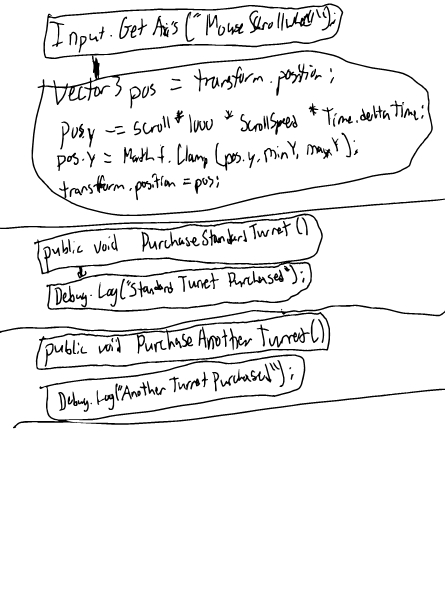 Input.GetAxis("MouseScrollwheel");
Vector3 pos = transform.position;
pos.y -= scroll * 1000 * ScrollSpeed * Time.deltaTime;
pos.Y = Mathf.Clamp(pos.y, minY, maxY);
transform.position = pos;
public void PurchaseStandardTurret()
Debug.Log("Standard Turret Purchased");
public void PurchaseAnotherTurret()
Debug.Log("Another Turret Purchased");